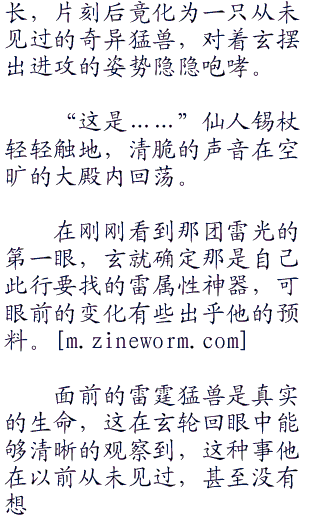 长，片刻后竟化为一只从未
见过的奇异猛兽，对着玄摆
出进攻的姿势隐隐咆哮。
“这是……”仙人锡杖
轻轻触地，清脆的声音在空
旷的大殿内回荡。
在刚刚看到那团雷光的
第一眼，玄就确定那是自己
此行要找的雷属性神器，可
眼前的变化有些出乎他的预
料。[m.zineworm.com]
面前的雷霆猛兽是真实
的生命，这在玄轮回眼中能
够清晰的观察到，这种事他
在以前从未见过，甚至没有
想